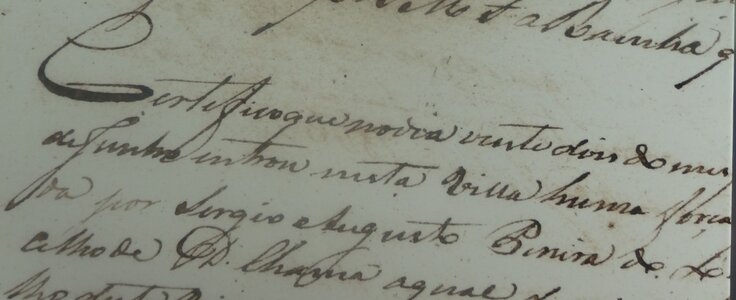 a Rainha q
Certifico que no dia vente dois do mes
de Junho entrou nesta Villa huma força
da por Sergio Augusto Pereira de
celho de D. Chama a qual